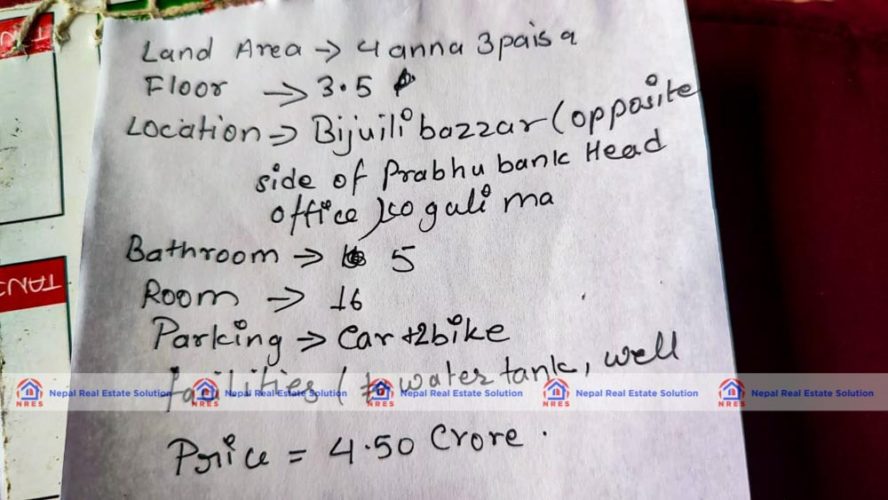 Land Area → 4 anna 3 paisa
Floor → 3.5
Location → Bijuili bazzar (opposite
side of Prabhu bank Head
office) ko gali ma
Bathroom → 5
Room → 16
Parking → Car +2bike
facilities ( water tank, well
NRES Nepal Real Estate Solution NRES Nepal Real Estate Solution NRES Nepal Real Estate Solution NRES Nepal Real Estate Solution NRES Nepal Real Estate Solution
Price = 4.50 Crore.